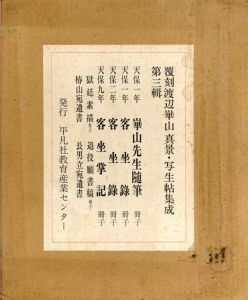 覆刻渡辺崋山 真景・写生帖集成
第三輯
天保一年 崋山先生随筆 冊子
天保一年 客坐録 冊子
天保二年 客坐録 冊子
天保九年 客坐掌記 冊子
獄廷素描 退役願書稿
椿山宛遺書 長男立宛遺書
発行 平凡社教育産業センター